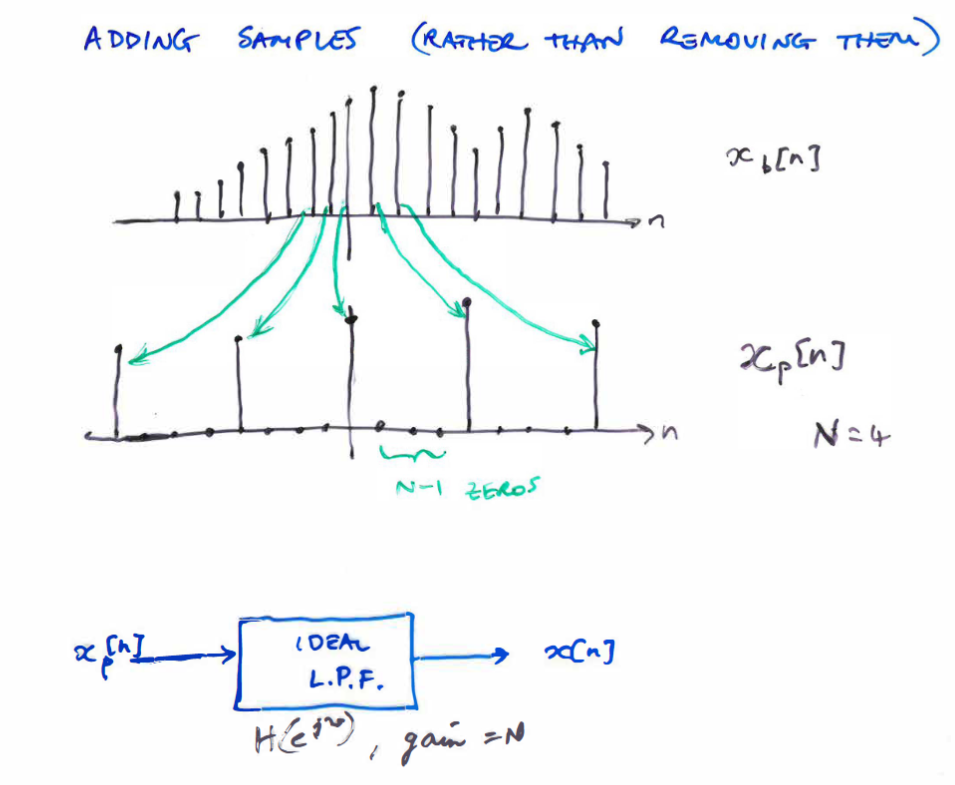 ADDING SAMPLES (RATHER THAN REMOVING THEM)
x_b[n]
n
x_p[n]
n
N=4
N-1 ZEROS
x_p[n]
IDEAL
L.P.F.
x[n]
H(e^{jω}), gain = N